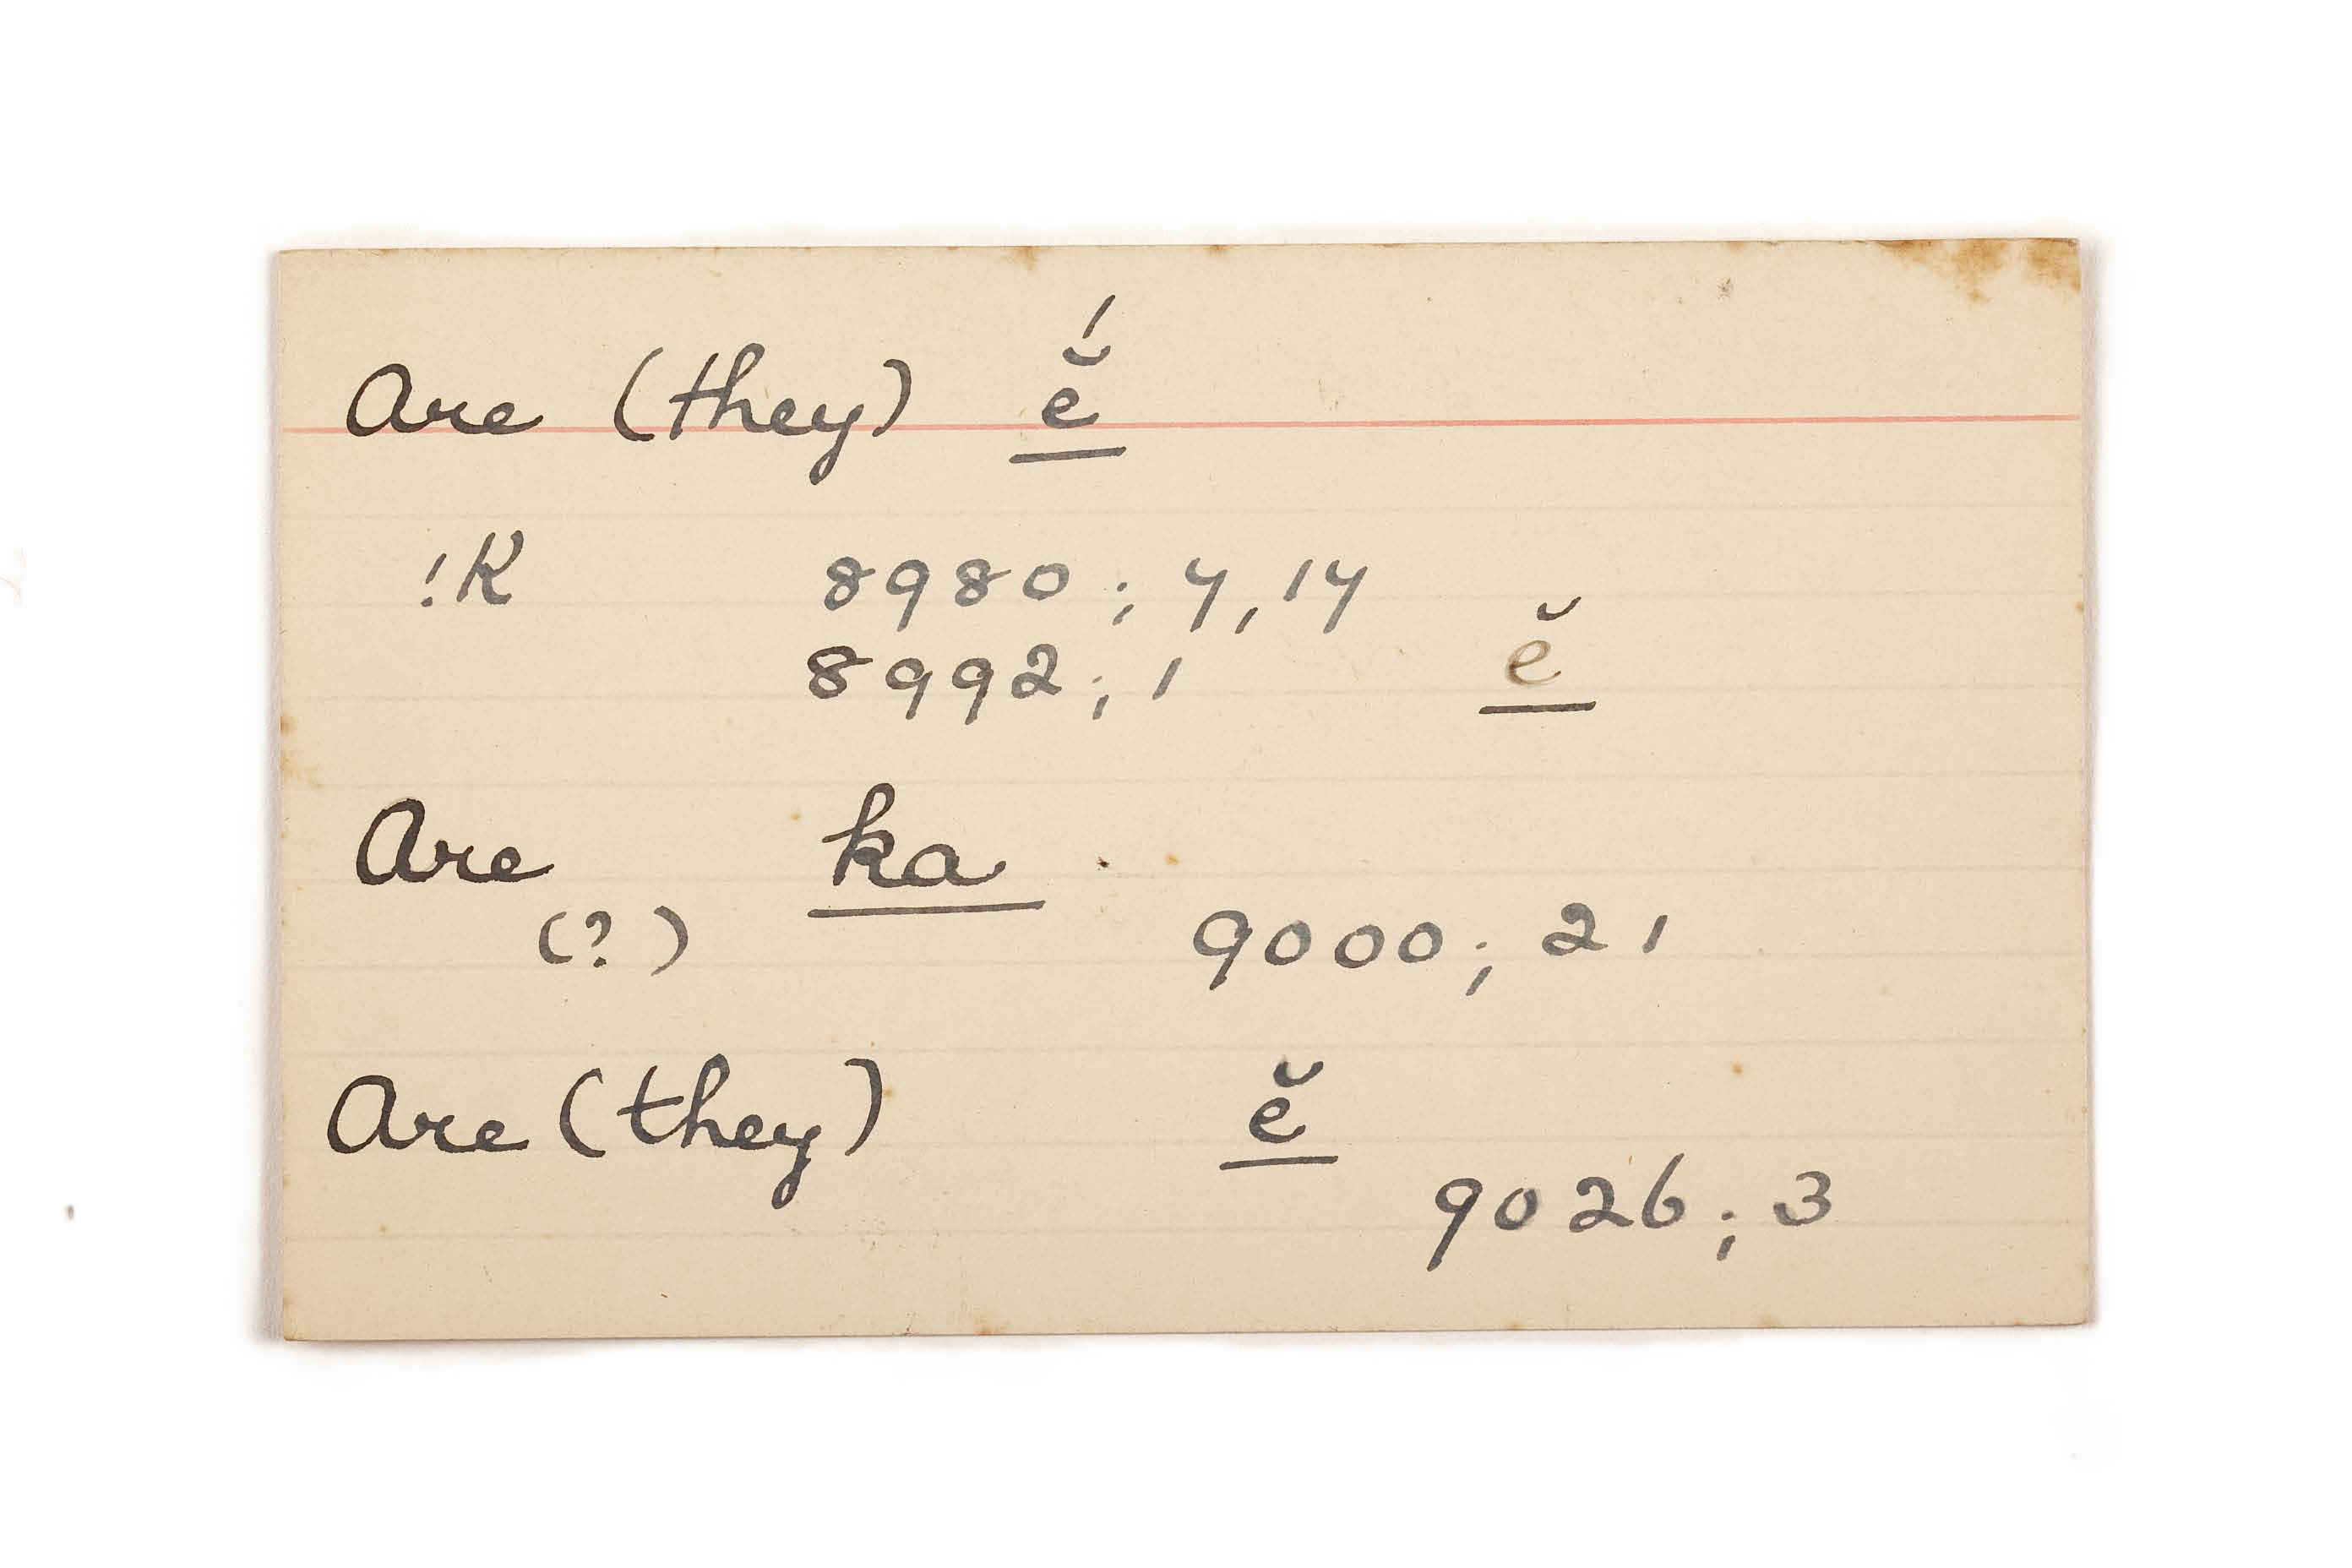 Are (they) ĕ́
!K 8980; 7, 17
8992; 1 ĕ
Are ka
(?) 9000; 21
Are (they) ĕ
9026; 3